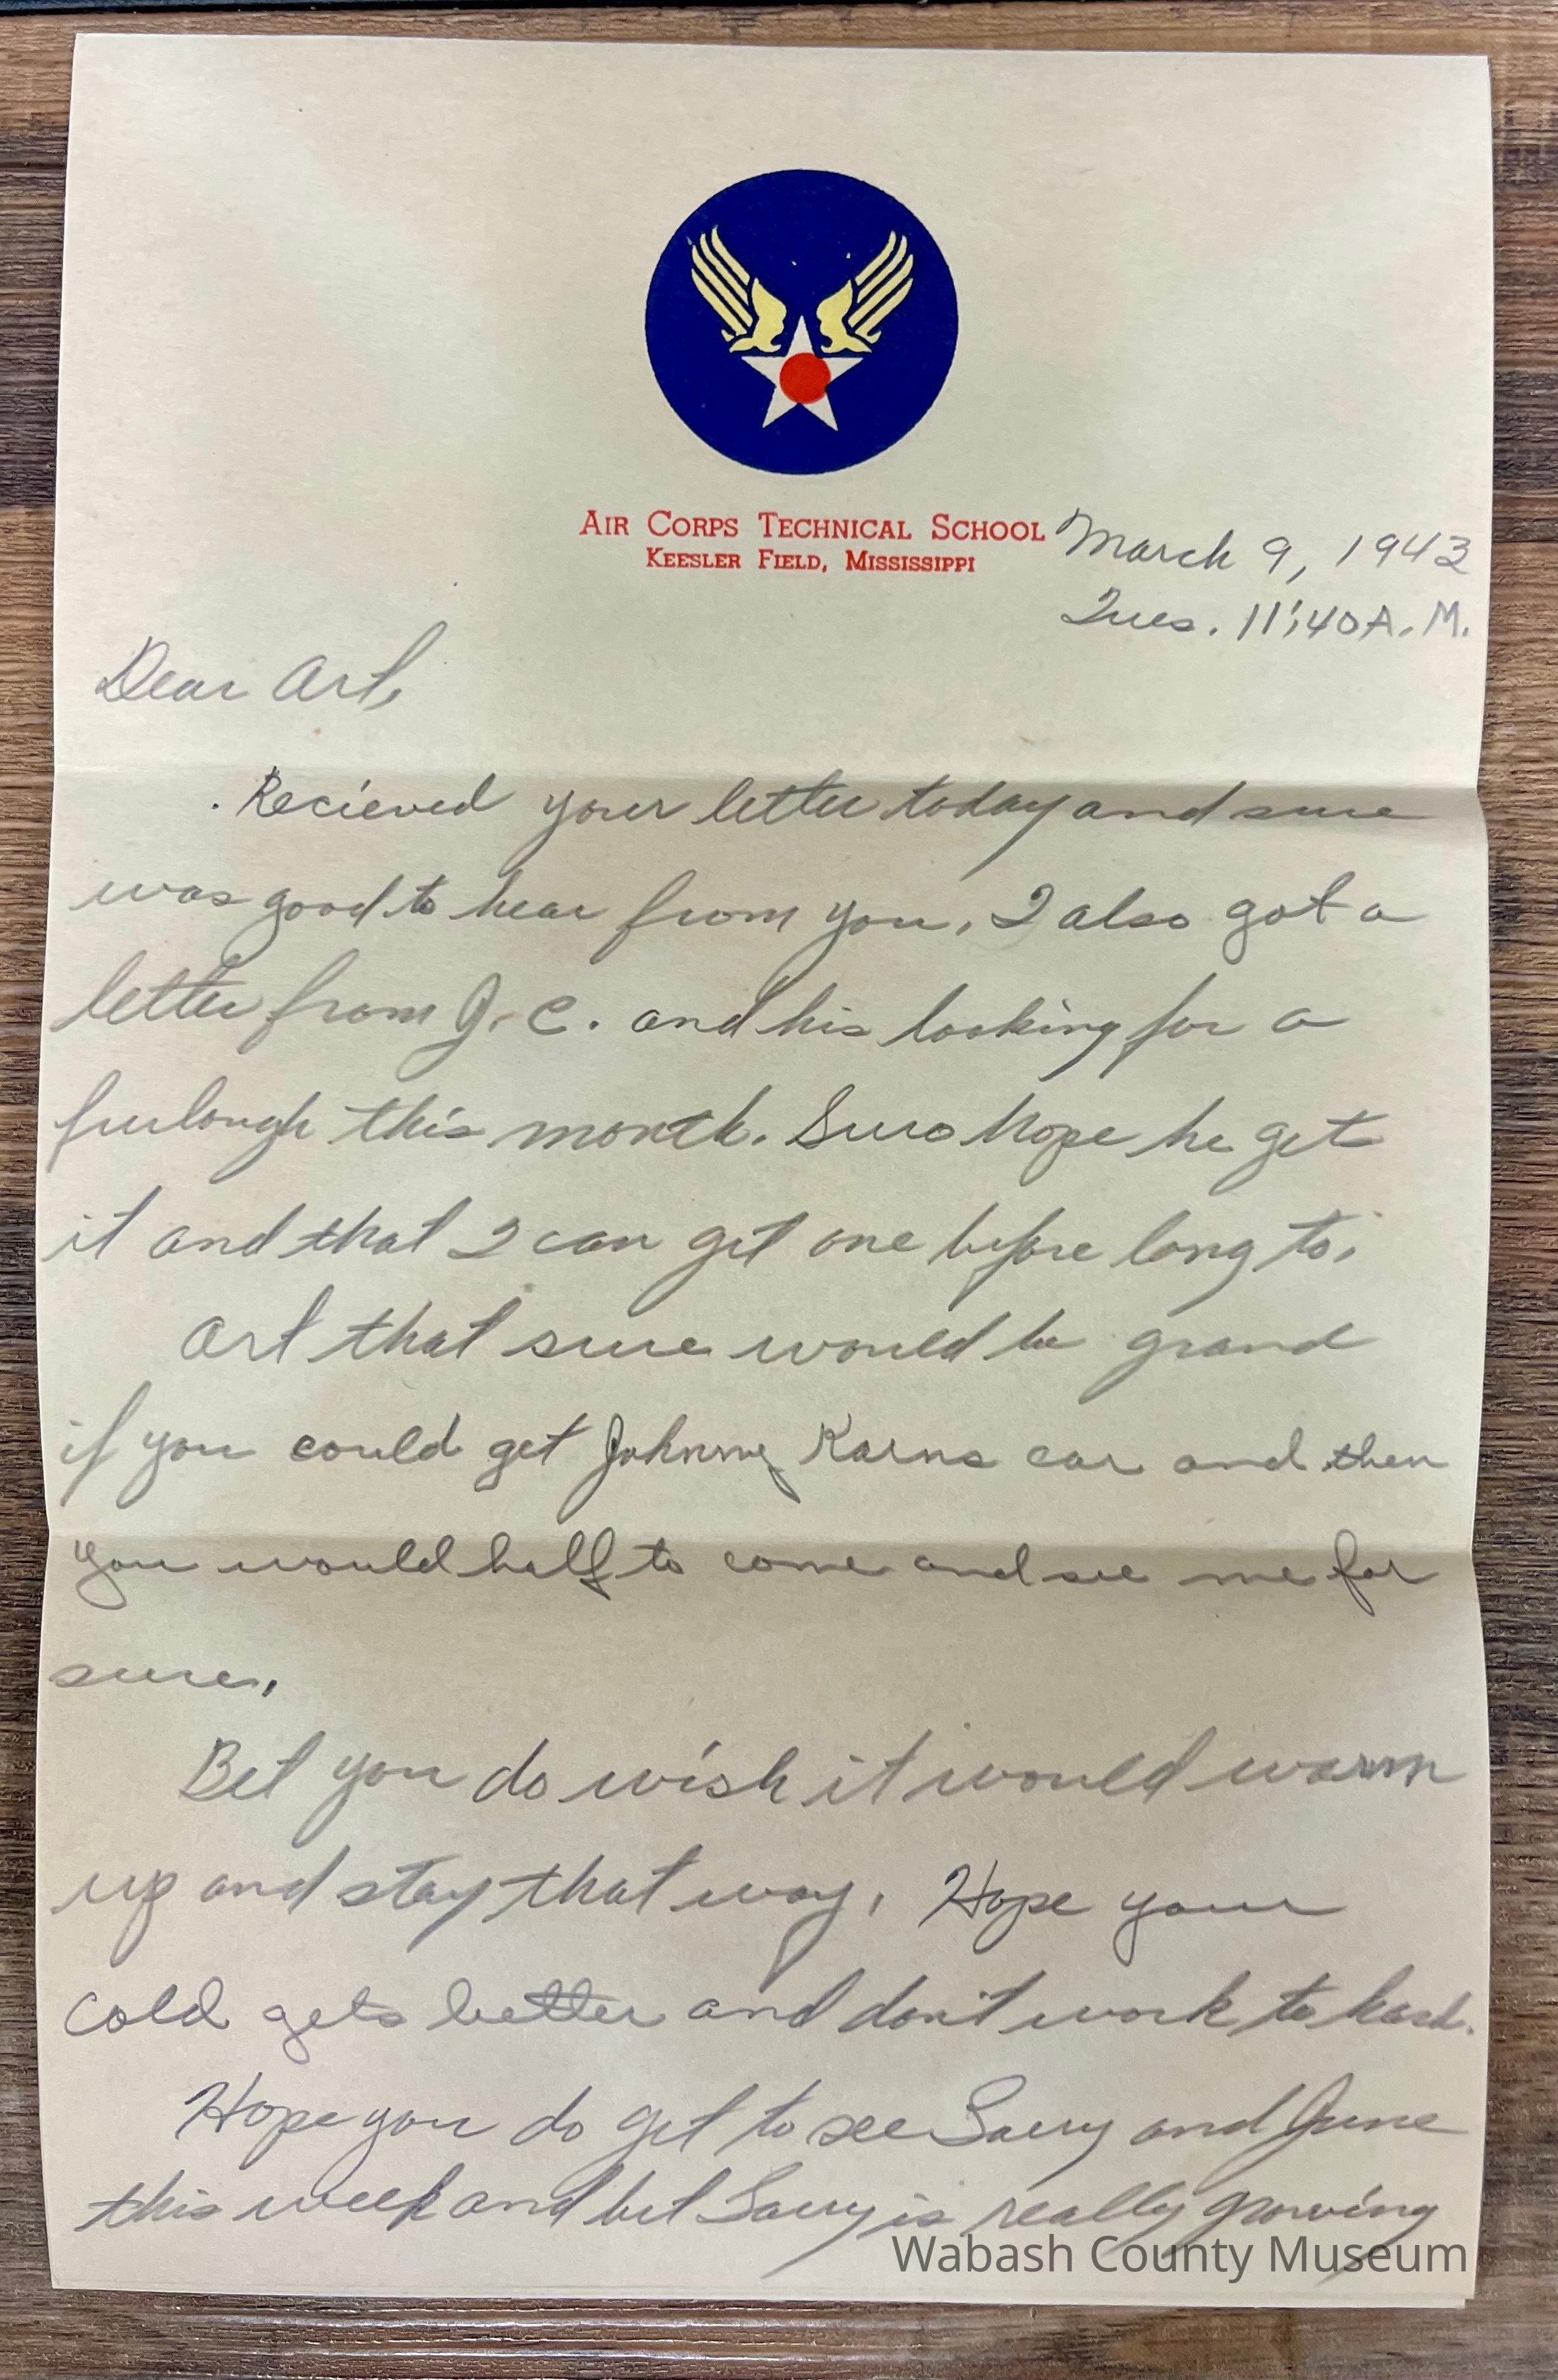 AIR CORPS TECHNICAL SCHOOL
KEESLER FIELD, MISSISSIPPI
March 9, 1943
Tues. 11:40 A.M.
Dear Art,
Recieved your letter today and sure
was good to hear from you. I also got a
letter from J.C. and his looking for a
furlough this month. Sure hope he get
it and that I can get one before long to.
Art that sure would be grand
if you could get Johnny Karns car and then
you would half to come and see me for
sure.
Bet you do wish it would warm
up and stay that way. Hope your
cold gets better and don't work to hard.
Hope you do get to see Larry and June
this week and bet Larry is really growing
Wabash County Museum